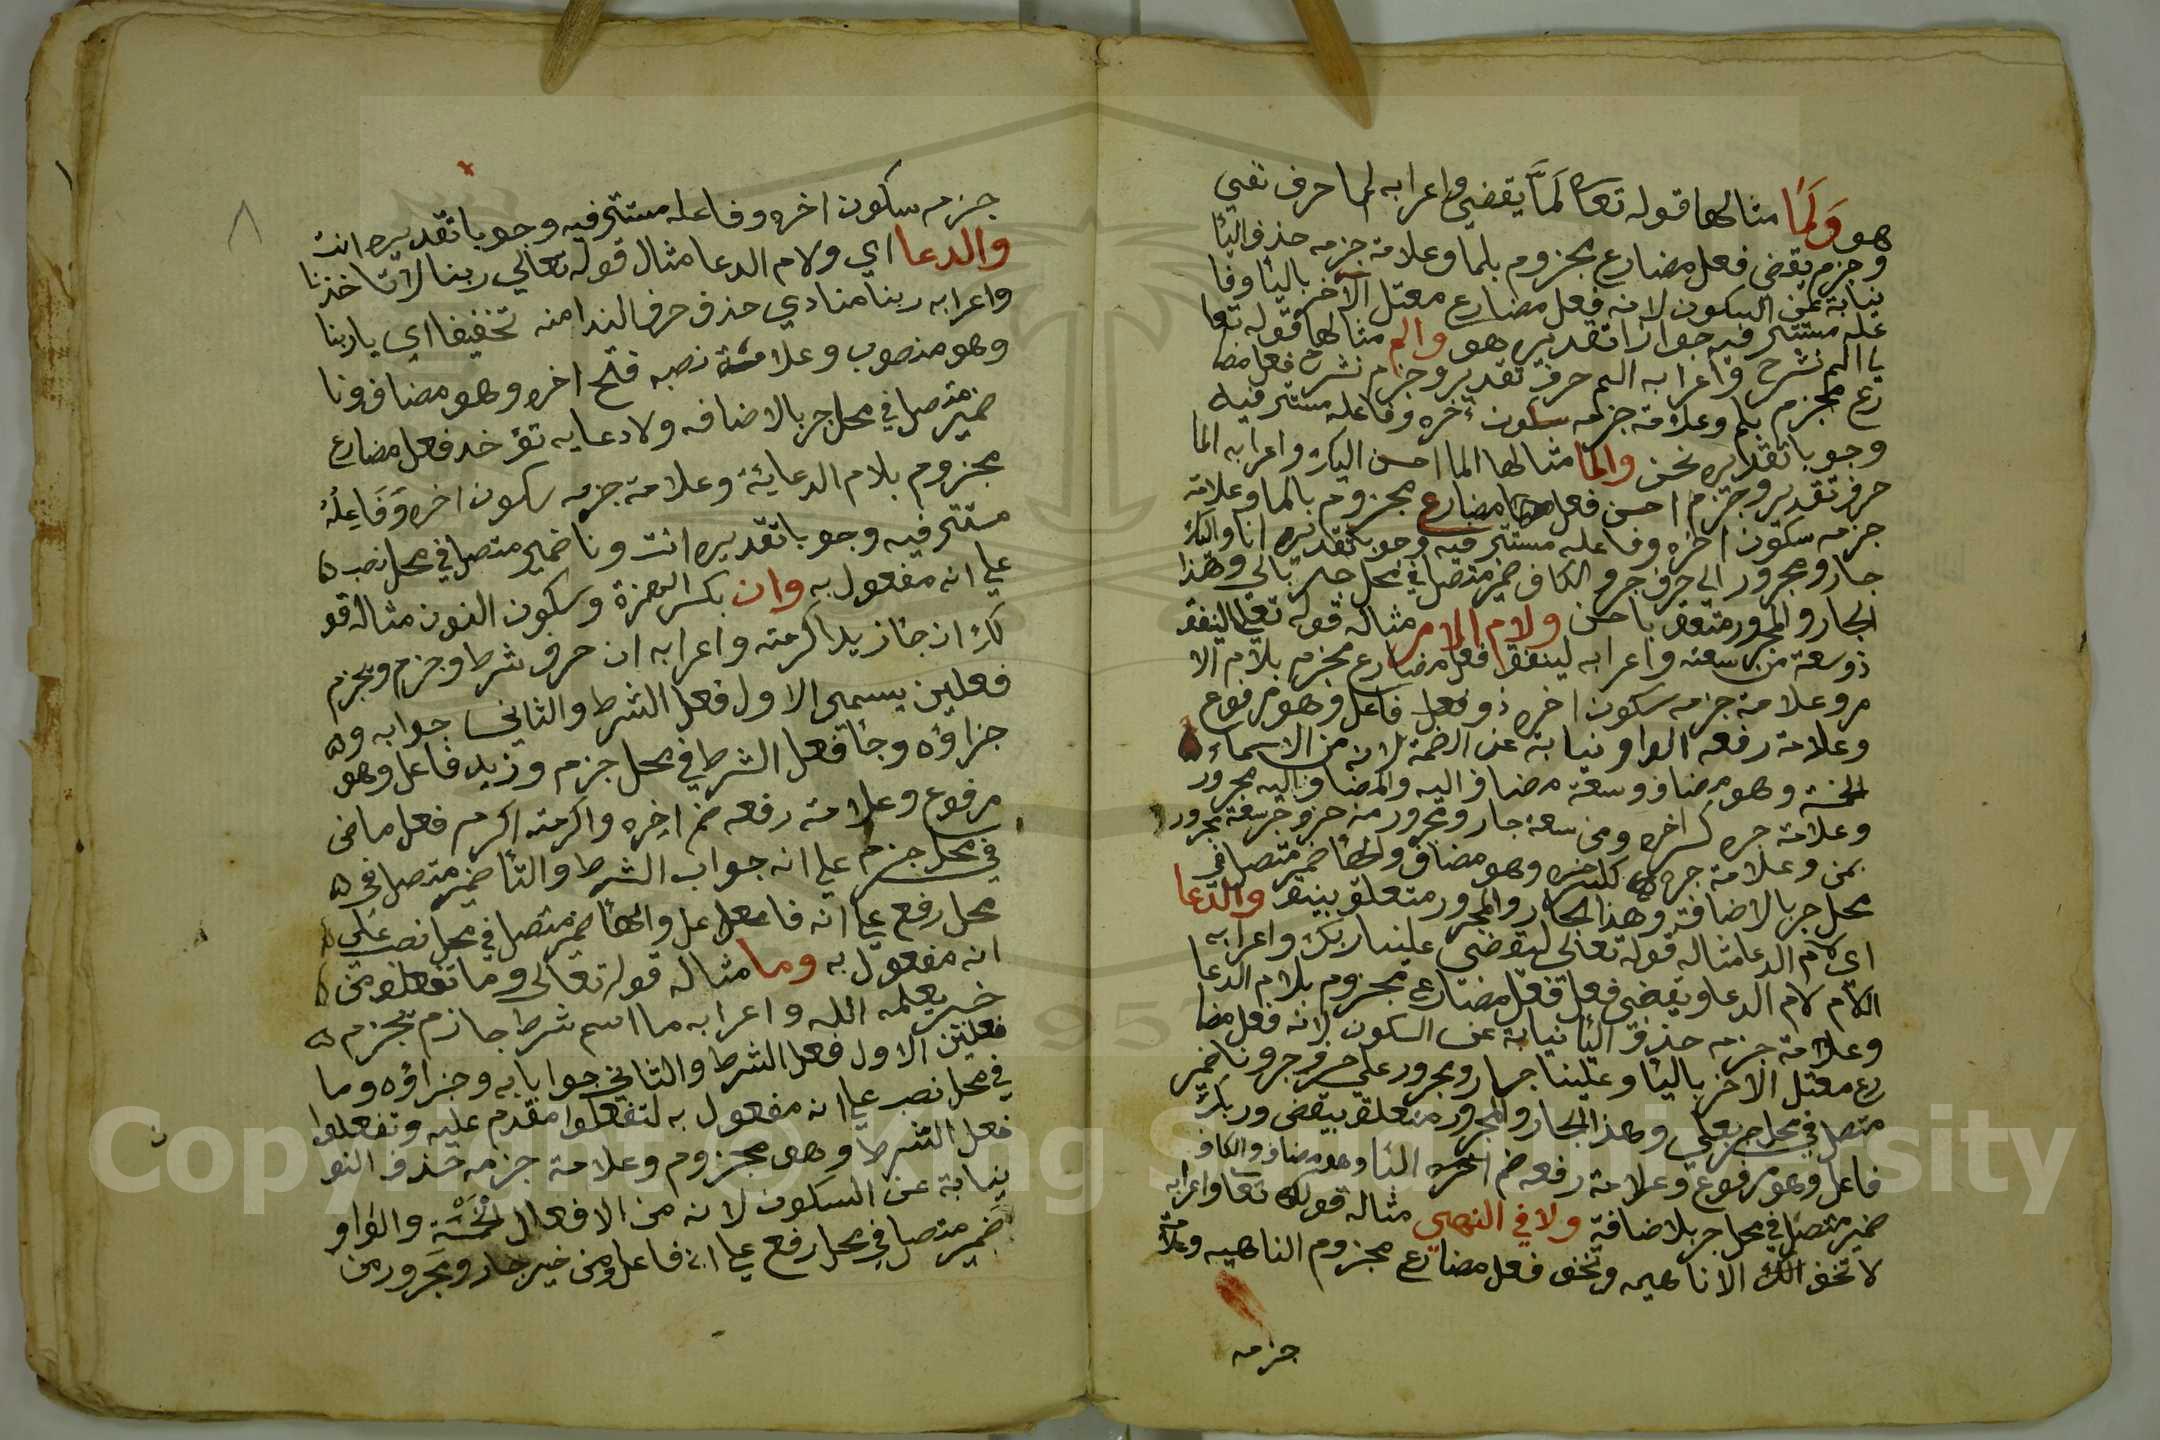 هو ولما مثالها قوله تعا لما يقضي واعرابه لما حرف نفي
وجزم يقض فعل مضارع مجزوم بلما وعلامة جزمه حذف اليا
نيابة عن السكون لانه فعل مضارع معتل الآخر باليا وفا
عله مستتر فيه جوازا تقديره هو والم مثالها قوله تعا
يا الم نشرح واعرابه الم حرف تقدير وجزم نشرح فعل مضا
رع مجزم بلم وعلامة جزمه سكون آخره وفاعله مستتر فيه
وجوبا تقديره نحن والما مثالها الما احسن اليك واعرابه الما
حرف تقدير وجزم احسن فعل مضارع مجزوم بالما وعلامة
جزمه سكون اخره وفاعله مستتر فيه وجوبا تقديره انا واليك
جار ومجرور الى حرف جر والكاف ضمير متصل في محل جر بالى وهذا
الجار والمجرور متعلق باحسن ولام الامر مثاله قوله تعالى لينفق
ذو سعة من سعته واعرابه لينفق فعل مضارع مجزم بلام الا
مر وعلامة جزمه سكون اخره ذو فاعل وهو مرفوع
وعلامة رفعه الواو نيابة عن الضمة لانه من الاسماء
الخمسة وهو مضاف وسعة مضاف اليه والمضاف اليه مجرور
وعلامة جره كسر اخره ومن سعة جار ومجرور من حرف جر سعة مجرور
بمن وعلامة جره كسر اخره وهو مضاف والها ضمير متصل في
محل جر بالاضافة وهذا الجار والمجرور متعلق بينفق والدعا
اي لام الدعا مثاله قوله تعالى ليقضي علينا ربك واعرابه
اللام لام الدعا ويقضي فعل مضارع مجزوم بلام الدعا
وعلامة جزمه حذف اليا نيابة عن السكون لانه فعل مضا
رع معتل الاخر باليا وعلينا جار ومجرور على حرف جر ونا ضمير
متصل في محل جر بعلى وهذا الجار والمجرور متعلق بيقضي وربك
فاعل وهو مرفوع وعلامة رفعه ضم اخره وهو مضاف والكاف
ضمير متصل في محل جر بلاضافة ولا في النهي مثاله قولك تعا واعرابه
لا تخف الا ناهيه وتخف فعل مضارع مجزوم الناهيه وعلامة
جزمه
٨
جزمه سكون اخره وفاعله مستتر فيه وجوبا تقديره انت
والدعا اي ولام الدعا مثال قوله تعالى ربنا لا تاخذنا
واعرابه ربنا منادي حذف حرف الندا منه تخفيفا اي يا ربنا
وهو منصوب وعلامة نصبه فتح اخره وهو مضاف ونا
ضمير متصل في محل جر بالاضافه ولا دعايه تؤخذ فعل مضارع
مجزوم بلام الدعايئة وعلامة جزمه سكون اخره وفاعله
مستتر فيه وجوبا تقديره انت ونا ضمير متصل في محل نصب
على انه مفعول به وان بكسر الهمزة وسكون النون مثاله قو
لك ان جا زيدا كرمته واعرابه ان حرف شرط وجزم ويجزم
فعلين يسمى الاول فعل الشرط والثاني جوابه و
جزاؤه وجا فعل الشرط في محل جزم وزيد فاعل وهو
مرفوع وعلامة رفعه ضم اخره واكرمته اكرم فعل ماضي
في محل جزم على انه جواب الشرط والتا ضمير متصل في
محل رفع على انه فاعل والها ضمير متصل في محل نصب على
انه مفعول به وما مثاله قوله تعالى وما تفعلو من
خير يعلمه الله واعرابه ما اسم شرط جازم يجزم
فعلين الاول فعل الشرط والثاني جوابا به وجزاؤه وما
في محل نصب على انه مفعول به لتفعلوا مقدم عليه وتفعلوا
فعل الشرط وهو مجزوم وعلامة جزمه حذف النو
ن
نيابة عن السكون لانه من الافعال الخمسة والواو
ضمير متصل في محل رفع على انه فاعل ومن خير جار ومجرور من
Copyright © King Saud University
957